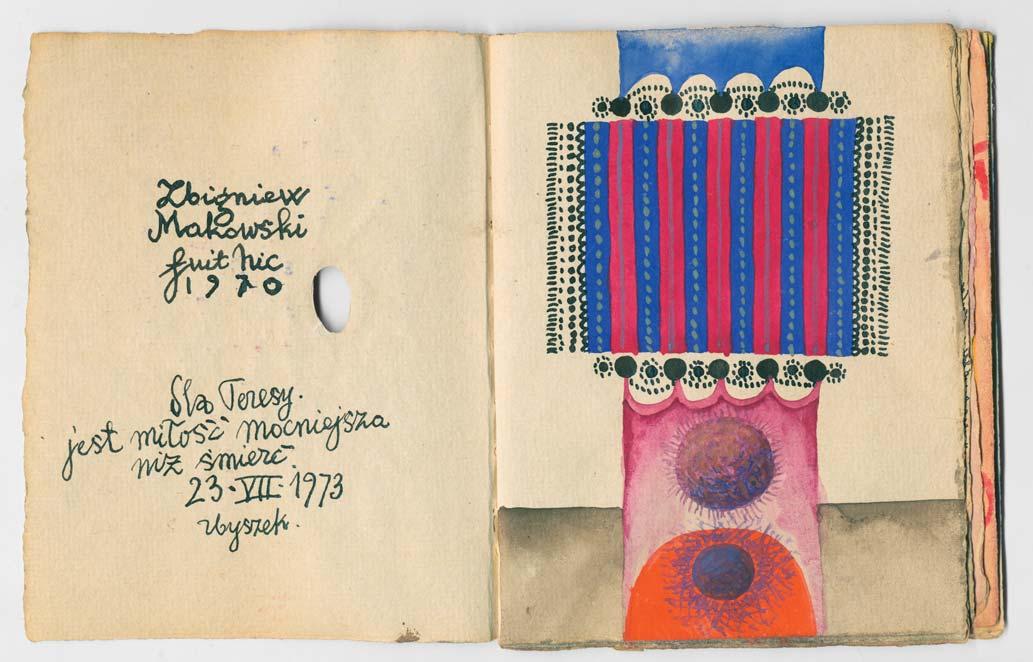 Zbigniew
Makowski
fuit hic
1970
Dla Teresy.
jest miłość mocniejsza
niż śmierć.
23·VII·1973
Zbyszek.